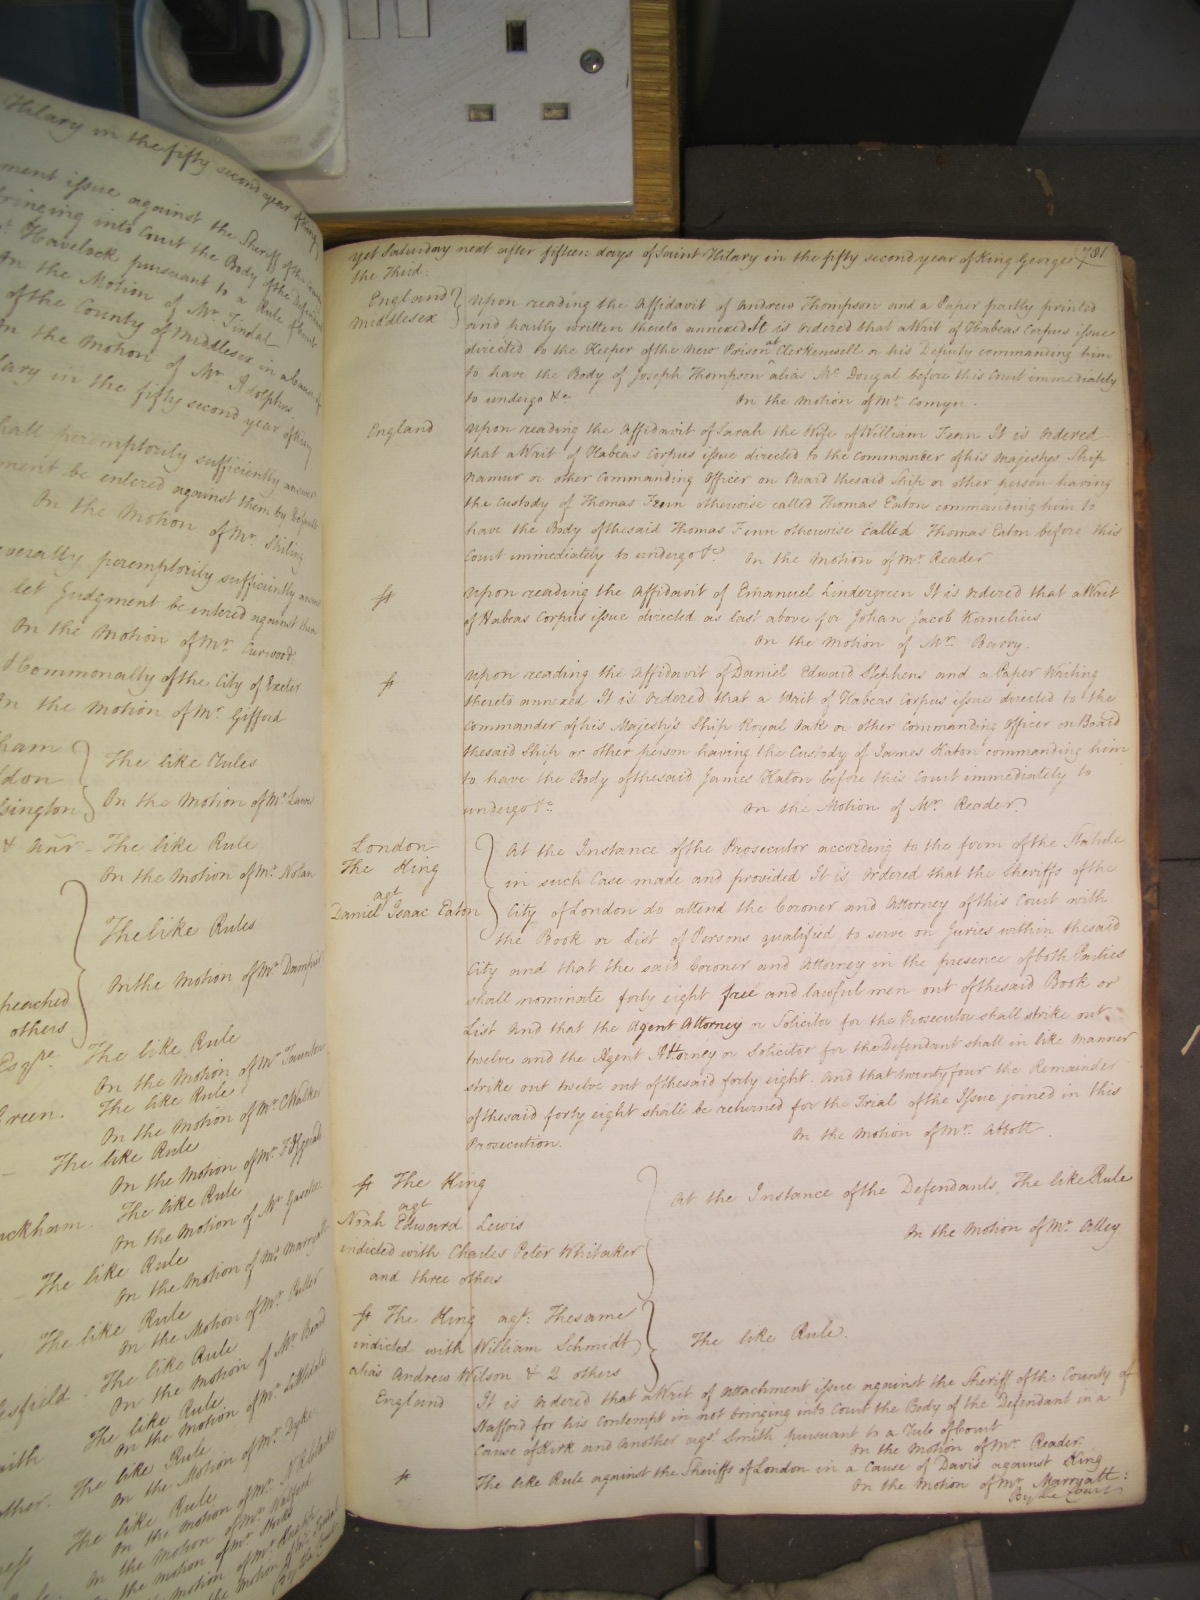 Hilary in the fifty second year of King
ment issue against the Sheriff of the County
bringing into Court the Body of the Defendant
Havelock pursuant to a Rule of Court
On the Motion of Mr. Tindal
of the County of Middlesex in a Cause of
On the Motion of Mr. Adolphus
lary in the fifty second year of King
hall peremptorily sufficiently answer
ment be entered against them by Default
On the Motion of Mr. Shiling
verally peremptorily sufficiently answer
let Judgment be entered against them
On the Motion of Mr. Curwood
& Commonalty of the City of Exeter
On the Motion of Mr. Gifford
ham
don
ssington
The like Rules
On the Motion of Mr. Lawes
& anr - The like Rule
On the Motion of Mr. Nolan
The like Rules
On the Motion of Mr. Dampier
peached
others
Esqre. The like Rule
On the Motion of Mr. Taunton
Green. The like Rule
On the Motion of Mr. C Walker
The like Rule
On the Motion of Mr. Fitzgerald
ckham. The like Rule
On the Motion of Mr. Gaselee
The like Rule
On the Motion of Mr. Marryatt
The like Rule
On the Motion of Mr. Puller
esfield. The like Rule
On the Motion of Mr. Beard
ith The like Rule
On the Motion of Mr. Littledale
other. The like Rule
On the Motion of Mr. Dyke
The like Rule
On the Motion of Mr.
On the Motion of Mr.
the Motion of Mr.
Motion of Mr.
the Motion of Mr.
By the Court
yet Saturday next after fifteen days of Saint Hilary in the fifty second year of King George 781
the Third:
England
Middlesex
Upon reading the Affidavit of Andrew Thompson and a Paper partly printed
and partly written thereto annexed It is Ordered that a Writ of Habeas Corpus issue
directed to the Keeper of the New Prison at Clerkenwell or his Deputy commanding him
to have the Body of Joseph Thompson alias Mc Dougal before this Court immediately
to undergo &c On the Motion of Mr. Comyn.
England
Upon reading the Affidavit of Sarah the Wife of William Fenn It is Ordered
that a Writ of Habeas Corpus issue directed to the Commander of his Majestys Ship
Namur or other Commanding Officer on Board the said Ship or other person having
the Custody of Thomas Fenn otherwise called Thomas Eaton commanding him to
have the Body of the said Thomas Finn otherwise called Thomas Eaton before this
Court immediately to undergo &c. On the Motion of Mr. Reader
Upon reading the Affidavit of Emanuel Lindergreen It is Ordered that a Writ
of Habeas Corpus issue directed as last above for Johan Jacob Kornelius
On the Motion of Mr. Barry.
Upon reading the Affidavit of Daniel Edward Stephens and a Paper Writing
thereto annexed It is Ordered that a Writ of Habeas Corpus issue directed to the
Commander of his Majesty's Ship Royal Oak or other Commanding Officer on Board
the said Ship or other person having the Custody of James Katon commanding him
to have the Body of the said James Katon before this Court immediately to
undergo &c. On the Motion of Mr. Reader.
London
The King
agt
Daniel Isaac Eaton
At the Instance of the Prosecutor according to the form of the Statute
in such Case made and provided It is Ordered that the Sheriffs of the
City of London do attend the Coroner and Attorney of this Court with
the Book or List of Persons qualified to serve on Juries within the said
City and that the said Coroner and Attorney in the presence of both Parties
shall nominate forty eight free and lawful men out of the said Book or
List and that the Agent Attorney or Solicitor for the Prosecutor shall strike out
twelve and the Agent Attorney or Solicitor for the Defendant shall in like manner
strike out twelve out of the said forty eight. And that twenty four the Remainder
of the said forty eight shall be returned for the Trial of the Issue joined in this
Prosecution. On the Motion of Mr. Abbott.
The King
agt
Noah Edward Lewis
indicted with Charles Peter Whitaker
and three others
At the Instance of the Defendants, The like Rule
On the Motion of Mr. Alley
The King agt. The same
indicted with William Schmidt
alias Andrew Wilson & 2 others
The like Rule.
England
It is Ordered that a Writ of Attachment issue against the Sheriff of the County of
Stafford for his Contempt in not bringing into Court the Body of the Defendant in a
Cause of Kirk and Another agst Smith pursuant to a Rule of Court
On the Motion of Mr. Reader.
The like Rule against the Sheriffs of London in a Cause of Davis against King
On the Motion of Mr. Marryatt:
By the Court